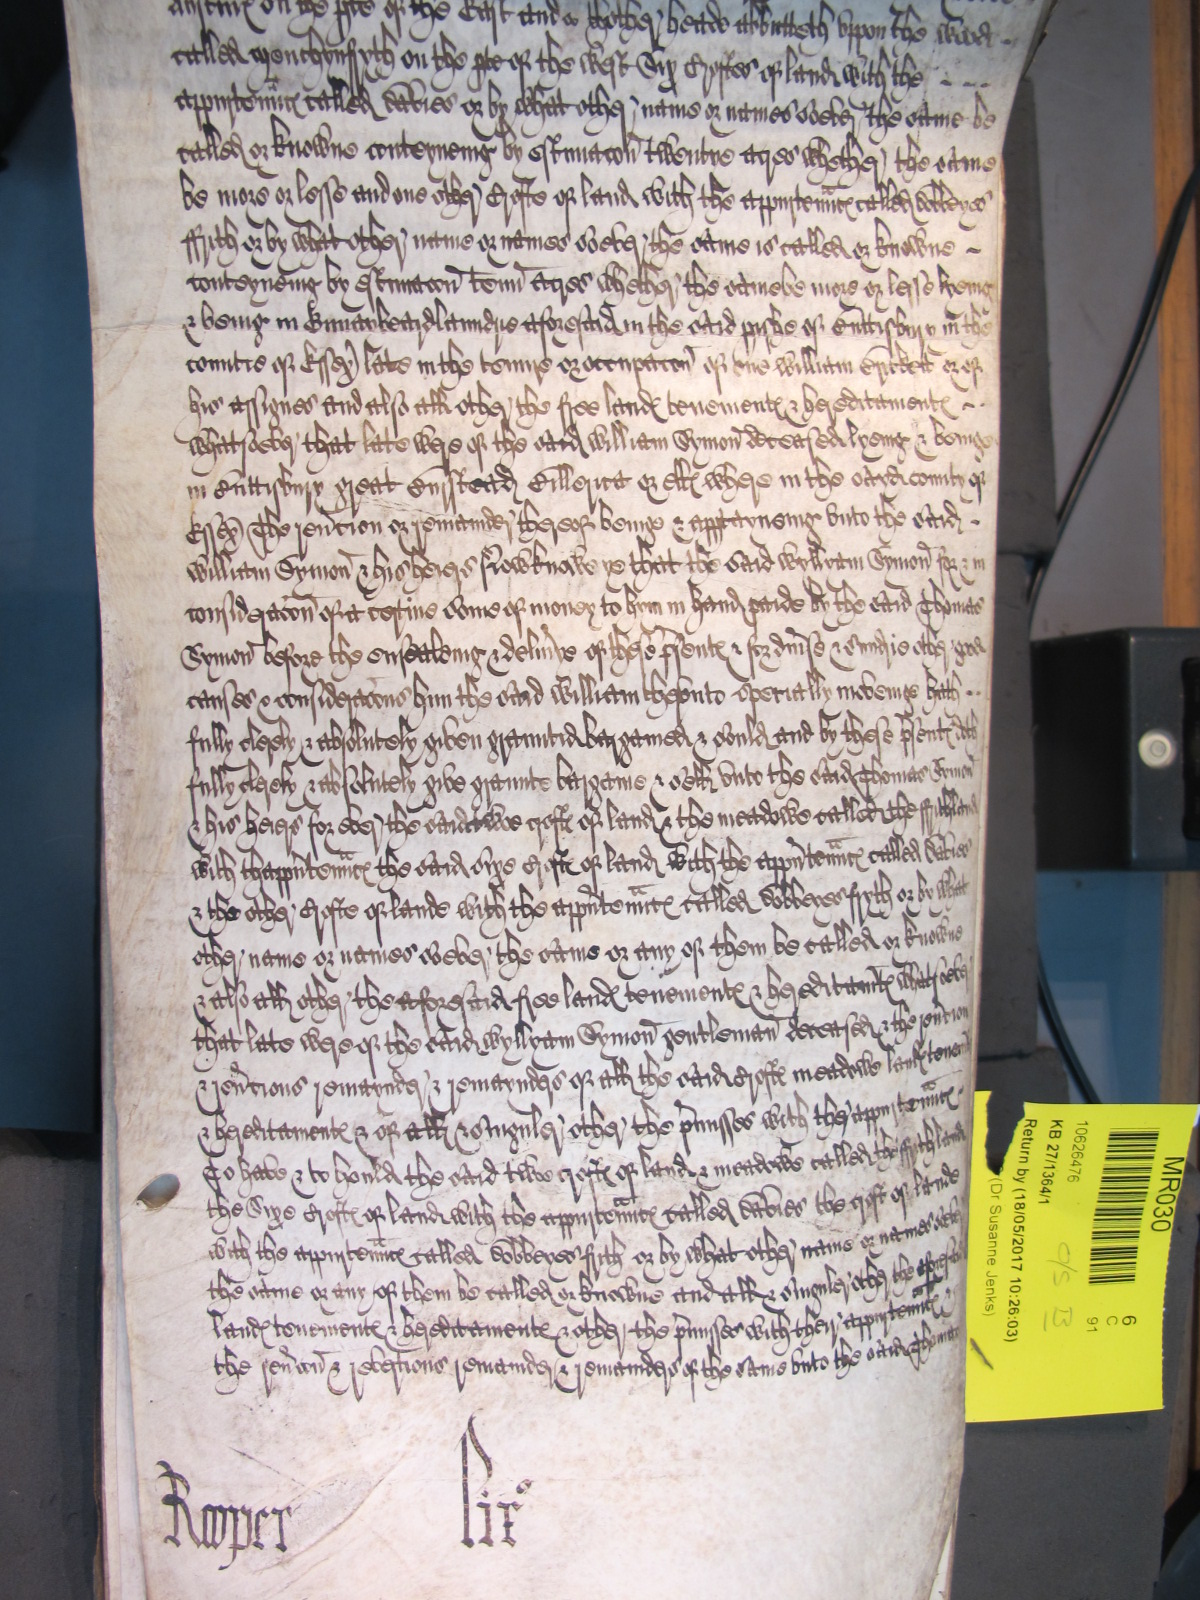 on the pte of the East and thother heade abbutteth uppon the
called Monchynfryth on the pte of the West Syx Croftes of land with the
appurtennc called Davies or by what other name or names soever the same be
called or knowne conteynenig by estimacon twentye acres whether the same
be more or lesse and one other Crofte of land with the appurtennc called Dobbeyes
ffrith or by what other name or names soever the same is called or knowne
conteyneng by estimacon tenn acres whether the same be more or lesse lyeing
& being in aforesaid in the said pishe of Buttisbury in the
countie of Essex late in the tenure or occupacon of one william or of
his assignes and also all other the free landes tenementes & hereditamentes
whatsoever that late were of the said william Symon deceased lyeing & beinge
in Buttisbury great Bursted Billerica or elles where in the sayd county of
Essex The revcion or remainder thereof beinge & apptayneing unto the said
william Symon & his heires Now knowe ye that the said wyllyam Symon for & in
consideracon of a certine some of money to hym in hand paide by the said Thomas
Symon before the ensealeing & delivye of these psentes & for divse & sundrie other good
causes & consideracons him the said william therunto specially moveinge hath
fully clerely & absolutely given graunted bargained & sould and by these psentes doth
fully clerely & absolutely give graunte bargaine & sell unto the said Thomas Symon
& his heires for ever the said twoe croftes of land & the meadowe called the ffrithland
with thappurtennc the said Sixe Croftes of land with the appurtennc called Davies
& the other Crofte of lande with the appurtennc called Dobbeyes fryth or by what
other name or names soever the same or any of them be called or knowne
& also all other the aforesaid free landes tenementes & hereditamentes whatsoever
that late were of the said wyllyam Symon gentleman deceased & the revcion
& revcions remaynder & remaynders of all the said croftes meadowe landes tenementes
& hereditamentes & of all & singuler other the pmisses with ther appurtennc
To have & to hould the said twoe croftes of land & meadowe called the ffrithland
the Sixe Croftes of land with the appurtennc called Davies the croft of lande
with the appurtennc called Dobbeyes frith or by what other name or names soever
the same or any of them be called or knowne and all & singuler other the aforesaid
landes tenementes & hereditamentes & other the pmisses with their appurtennc
the revcon & revercions remainder & remainders of the same unto the said Thomas
Rooper
MR030
6
C
91
10626476
KB 27/1364/1
C/S B
Return by (18/05/2017 10:26:03)
(Dr Susanne Jenks)